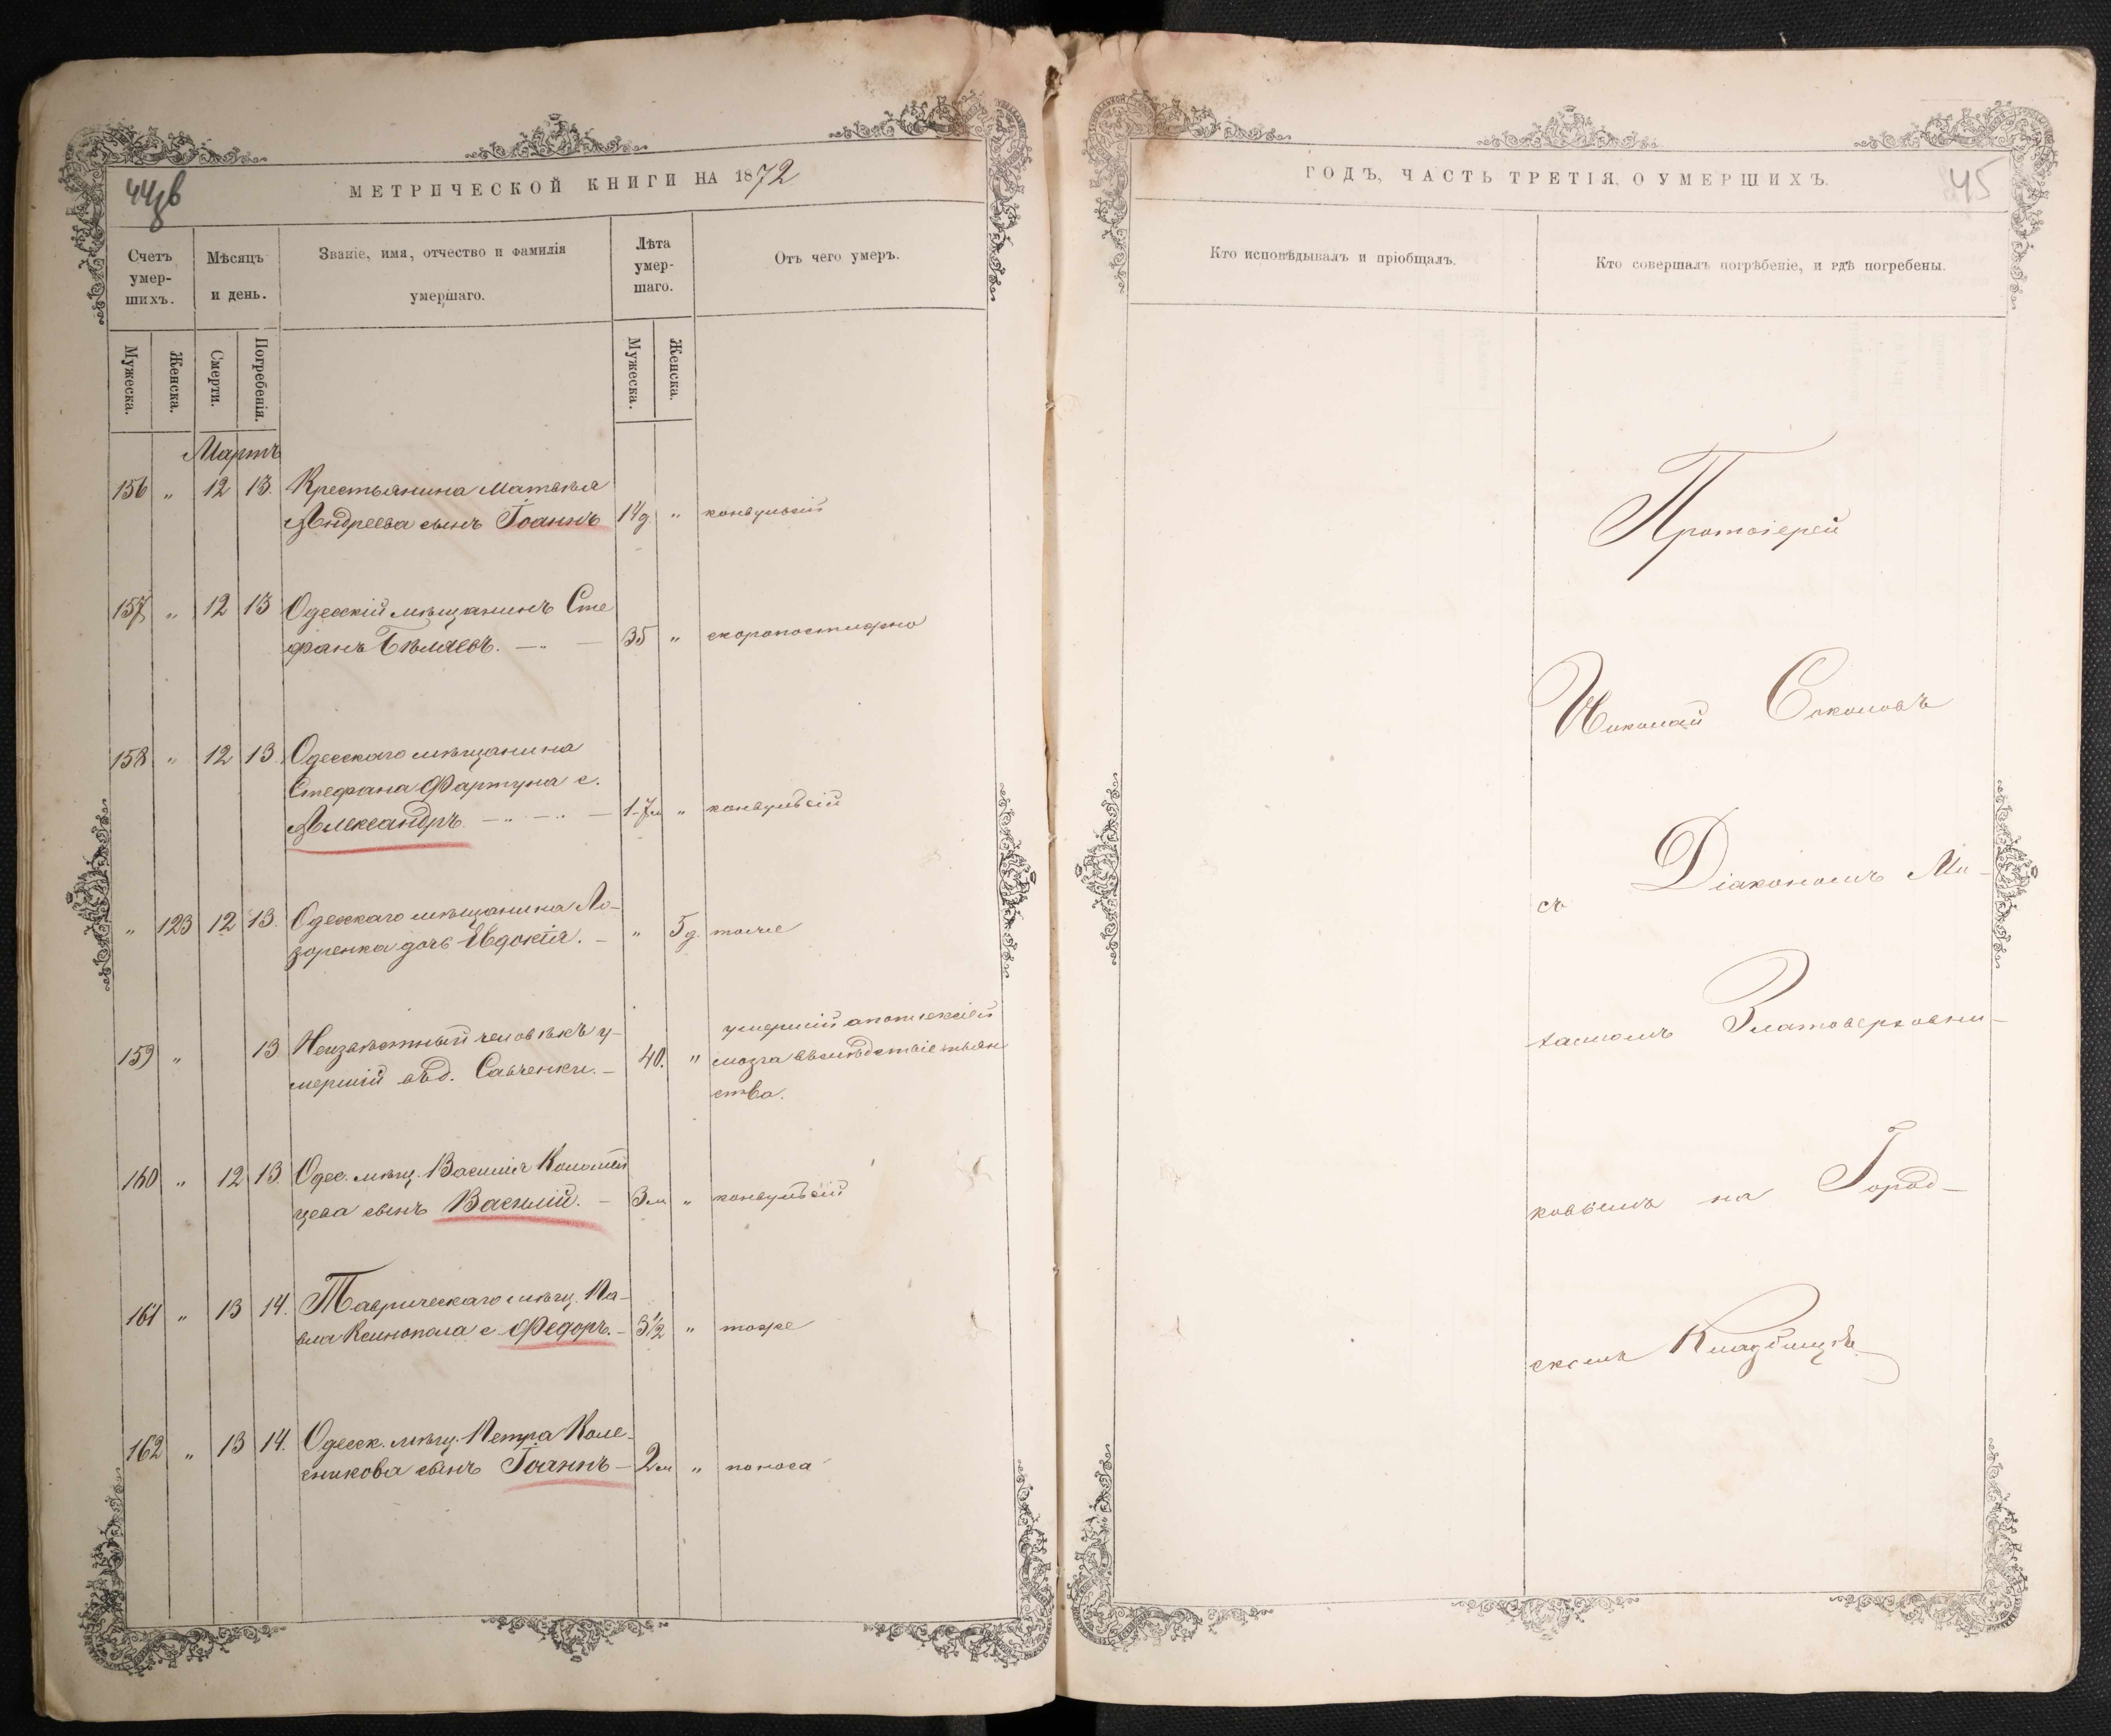 44зв
МЕТРИЧЕСКОЙ КНИГИ НА 1872
Счетъ умер-шихъ.
Мѣсяцъ и день.
Званіе, имя, отчество и фамилія умершаго.
Лѣта умер-шаго.
Отъ чего умеръ.
Мужеска.
Женска.
Смерти.
Погребенія.
Мужеска.
Женска.
Мартъ
156 „ 12 13. Крестьянина Матвѣя
Андреева сынъ Іоаннъ 14д „ конвульсій
157 „ 12 13 Одесскій мѣщанинъ Сте
фанъ Бѣляевъ. — „ — 35 „ скоропостижно
158 „ 12 13. Одесскаго мѣщанина
Стефана Фартуна с.
Александръ — „ — „ — 1-7м „ конвульсій
„ 123 12 13. Одесскаго мѣщанина Ло-
зоренка дочь Евдокія. — „ 5д. тоже
159 „ 13 Неизвѣстный человѣкъ у-
мершій въ д. Савченки. — 40. „
умершій апоплексіей
мозга вслѣдствіе пьян
ства.
160 „ 12 13. Одес. мѣщ. Василія Коломій
цева сынъ Василій. — 3м „ конвульсій
161 „ 13 14. Таврическаго мѣщ. Па-
вла Ксинопола с Федоръ. — 3½ „ тоже
162 „ 13 14. Одесск. мѣщ. Петра Коле-
сникова сынъ Іоаннъ — 2м „ поноса
45
ГОДЪ, ЧАСТЬ ТРЕТІЯ, О УМЕРШИХЪ.
Кто исповѣдывалъ и пріобщалъ.
Кто совершалъ погрѣбеніе, и гдѣ погребены.
Протоіерей
Николай Соколовъ
съ Діакономъ Ми-
хаиломъ Златоверховни-
ковымъ на Город-
скомъ Кладбищѣ